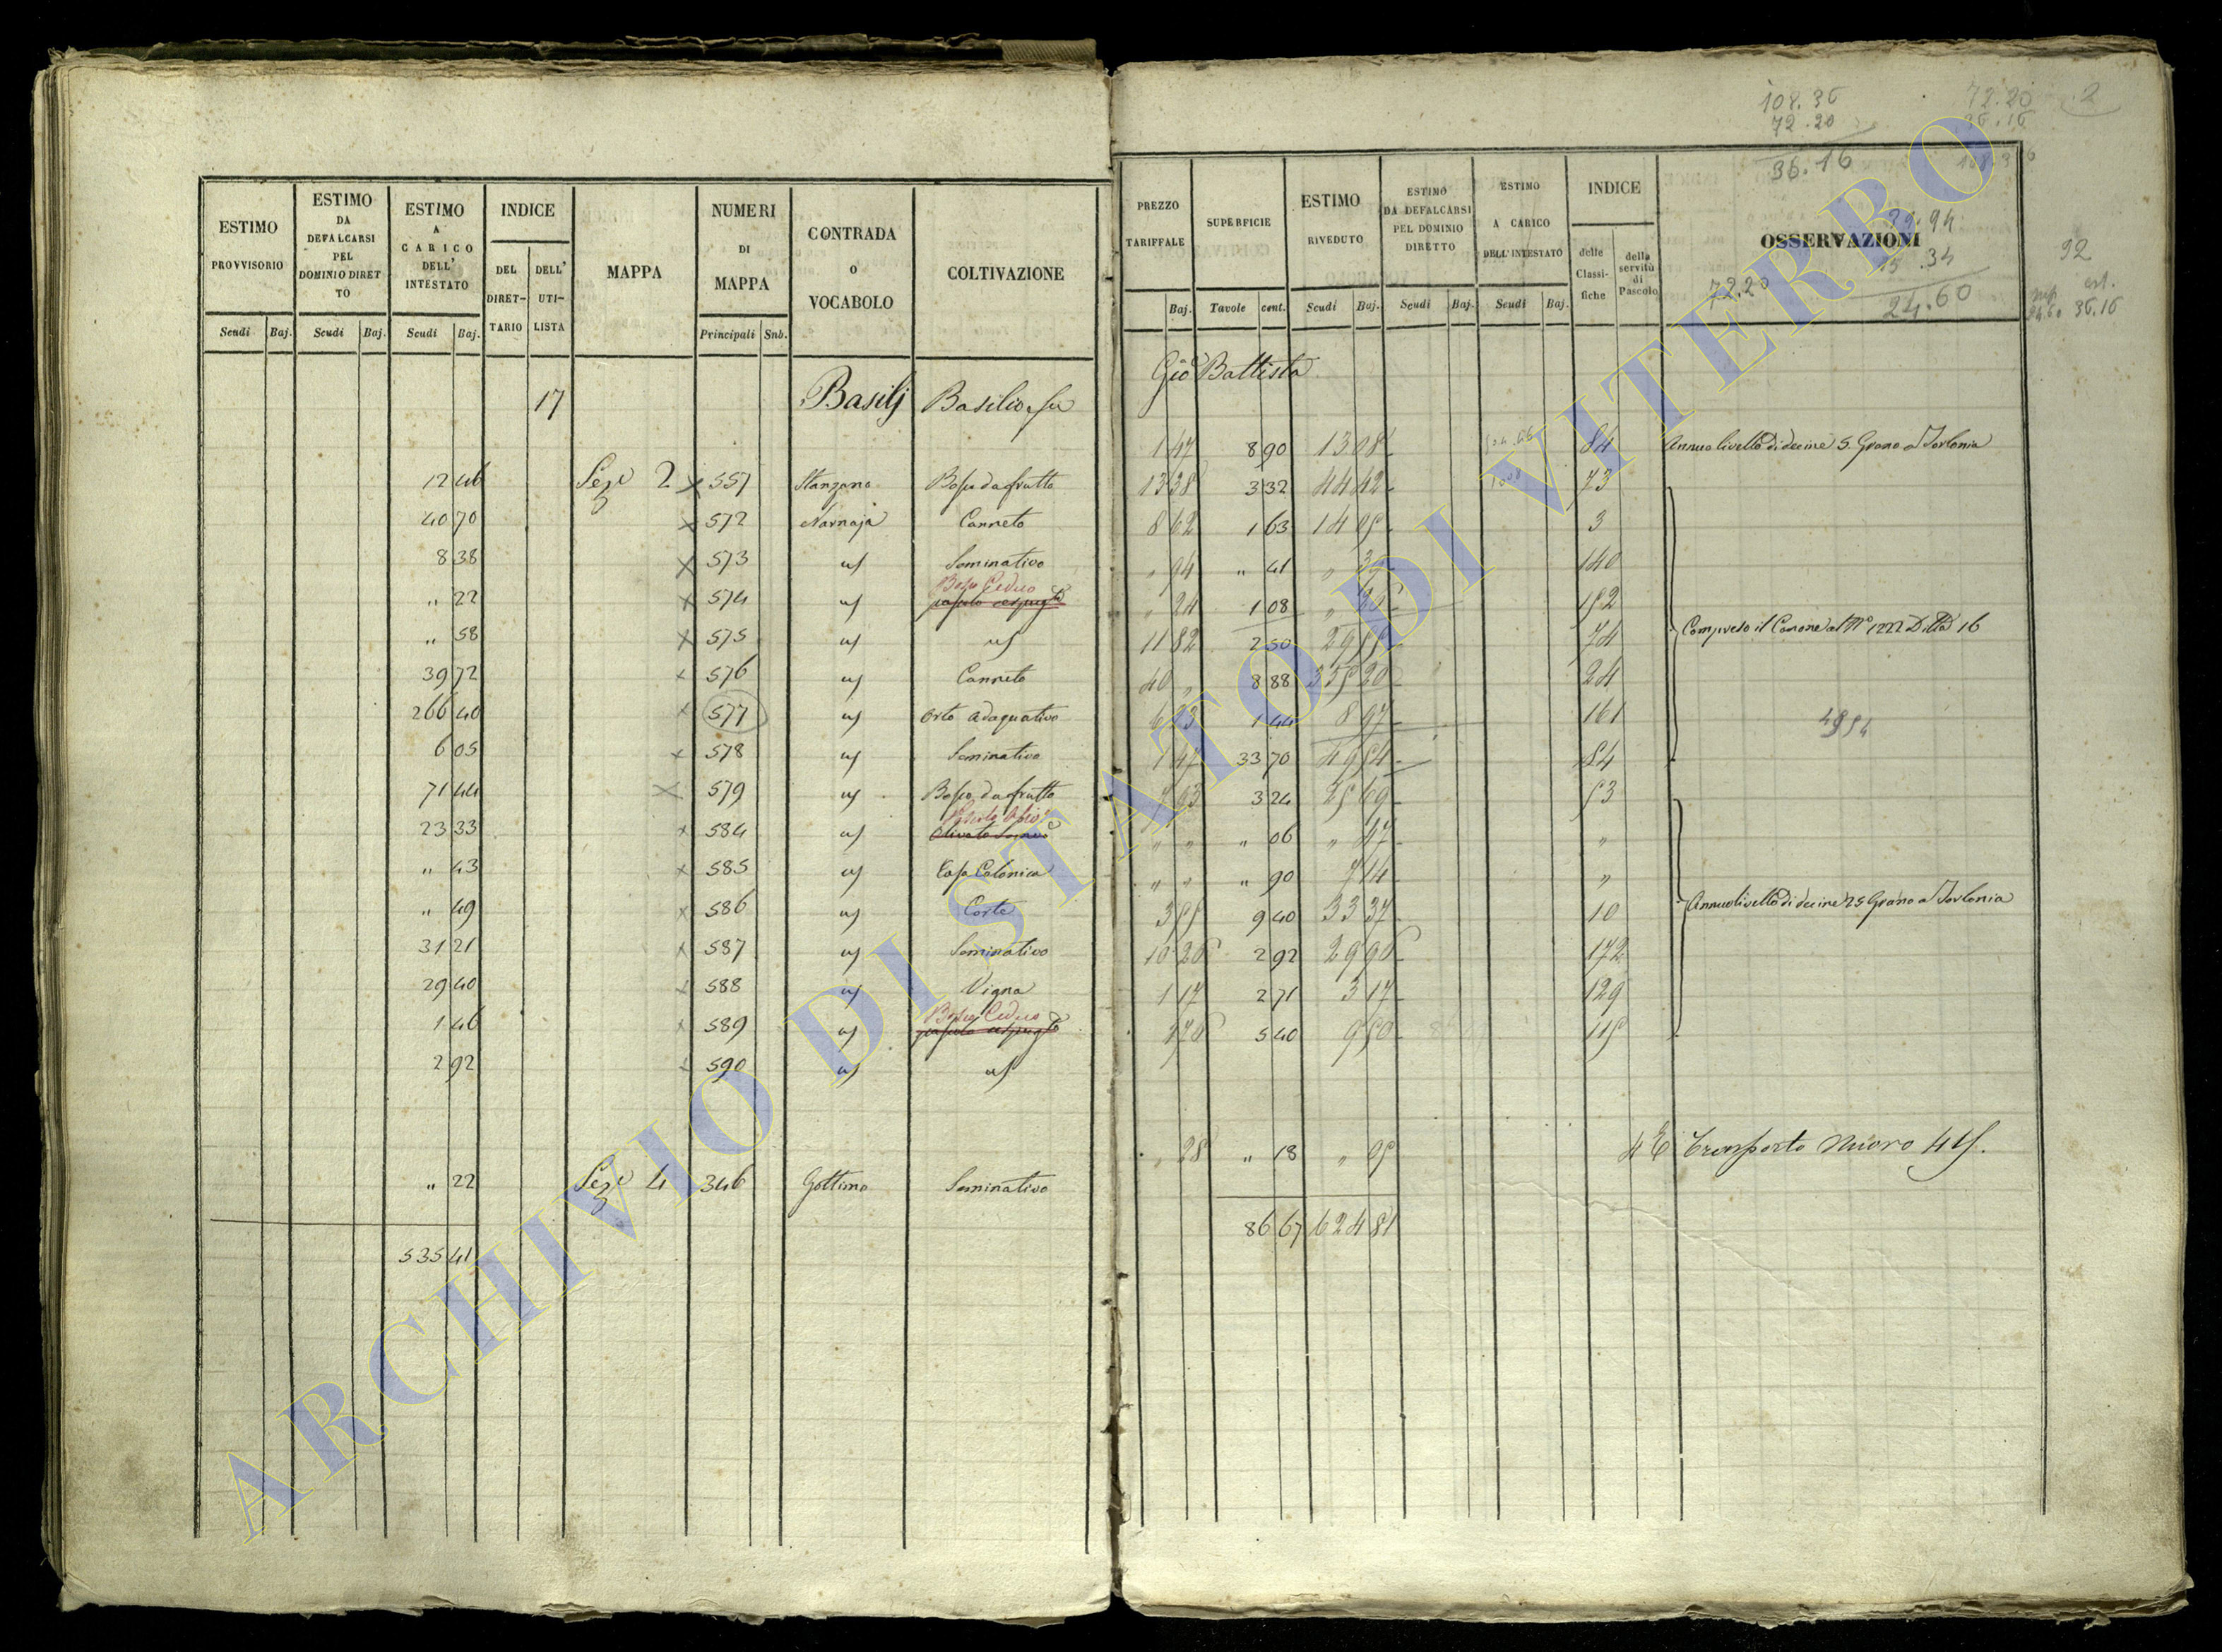 108.36 72.20 2
72.20 36.16
36.16 108.36
ESTIMO PROVVISORIO
Scudi Baj.
ESTIMO DA DEFALCARSI PEL DOMINIO DIRETTO
Scudi Baj.
ESTIMO A CARICO DELL' INTESTATO
Scudi Baj.
INDICE
DEL DIRETTARIO
DELL' UTILISTA
MAPPA
NUMERI DI MAPPA
Principali Snb.
CONTRADA O VOCABOLO
COLTIVAZIONE
PREZZO TARIFFALE
Baj.
SUPERFICIE
Tavole cent.
ESTIMO RIVEDUTO
Scudi Baj.
ESTIMO DA DEFALCARSI PEL DOMINIO DIRETTO
Scudi Baj.
ESTIMO A CARICO DELL'INTESTATO
Scudi Baj.
INDICE
delle Classifiche
della servitù di Pascolo
OSSERVAZIONI
72.20
24.60
92
36.16
17 Basilj Basilio fu Gio Battista
12 46 Sez.e 2 557 Stanzano Bosco da frutto 1 47 8 90 13 08 84 Annuo livello di decine 5. Grano a Torlonia
40 70 572 Narnaja Canneto 13 38 3 32 44 42 73
8 38 573 us Seminativo 8 62 1 63 14 05 3
Bosco Ceduo
" 22 574 us pascolo cespugto " 94 " 41 " 140
" 58 575 us us " 24 1 08 " 152
39 72 576 us Canneto 11 82 2 50 29 55 74 Compreso il Canone al N° 1222 Ditta 16
266 40 577 us Orto Adaquativo 40 " 8 88 355 20 24
6 05 578 us Seminativo 6 23 1 44 8 97 161
71 44 579 us Bosco da frutto 1 47 33 70 49 54 84
23 33 584 us 7 93 3 24 25 69 53
" 43 585 us Casa Colonica " " " 06 " 47 "
" 49 586 us Corte " " " 90 7 14 "
31 21 587 us Seminativo 3 55 9 40 33 37 10 Annuo livello di decine 25 Grano a Torlonia
29 40 588 us Vigna 10 26 2 92 29 96 172
Bosco Ceduo
1 46 589 us pascolo cespugto 1 17 2 71 3 17 129
2 92 590 us us 1 76 5 40 9 50 115
" 22 Sez.e 4 346 Gottimo Seminativo " 28 " 18 " 05 Trasporto Nuovo 45.
535 41 86 67 624 81
ARCHIVIO DI STATO DI VITERBO